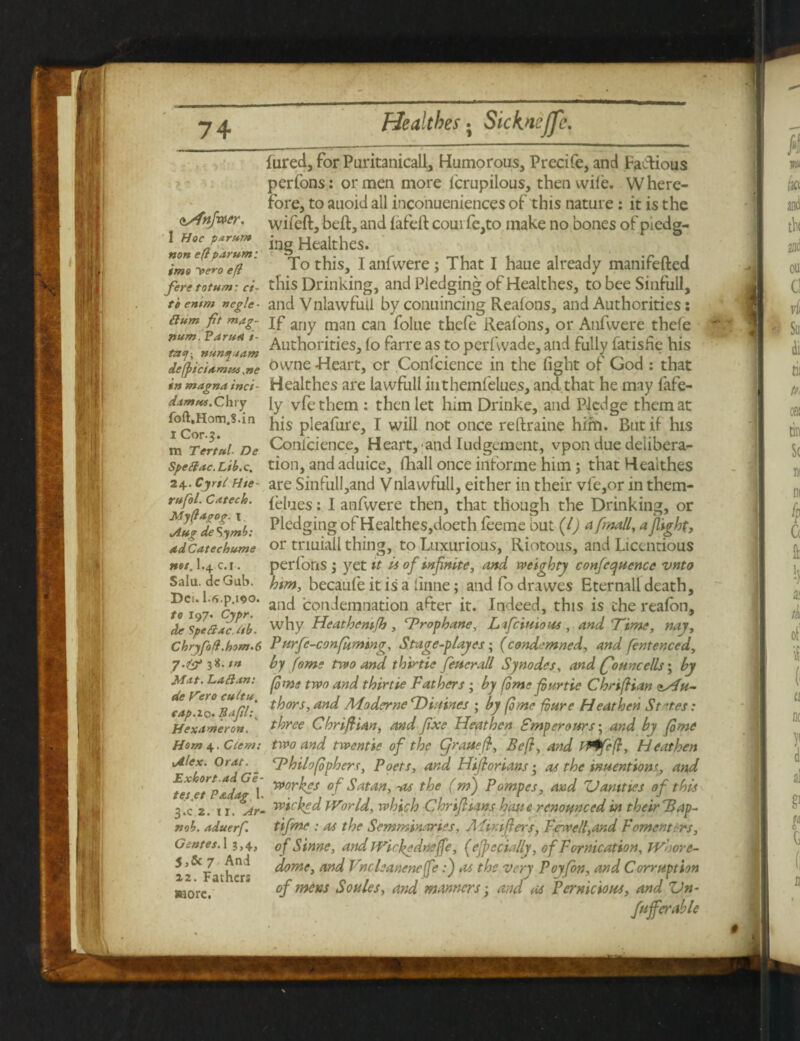 74
Healthes; Sicknesse.
sured, for Puritanicall, Humorous, Precise, and Factious
persons: or men more scrupilous, then wise. Where-
fore, to auoid all inconueniences of this nature: it is the
wisest, best, and safest course, to make no bones of piedg-
ing Healthes.
To this, I answere; That I haue already manifested
this Drinking, and Pledging of Healthes, to bee Sinfull,
and Vnlawfull by conuincing Reasons, and Authorities:
If any man can solue these Reasons, or Answere these
Authorities, so farre as to perswade, and fully satisfie his
owne Heart, or Conscience in the sight of God: that
Healthes are lawfull in themselues, and that he may safe-
ly vse them: then let him Drinke, and Pledge them at
his pleasure, I will not once restraine him. But if his
Conscience, Heart, and Iudgement, vpon due delibera-
tion, and aduice, shall once informe him; that Healthes
are Sinfull, and Vnlawfull, either in their vse, or in them-
selues: I answere then, that though the Drinking, or
Pledging of Healthes, doeth seeme but (l) a small, a slight,
or triuiall thing, to Luxurious, Riotous, and Licentious
persons; yet it is of infinite, and weighty consequence vnto
him, because it is a sinne; and so drawes Eternall death,
and condemnation after it. Indeed, this is the reason,
why Heathenish, Prophane, Lasciuious, and Time, nay,
Purse-consuming, Stage-playes; (condemned, and sentenced,
by some two and thirtie seuerall Synodes, and Councells; by
some two and thirtie Fathers; by some fourtie Christian Au-
thors, and Moderne Diuines; by some foure Heathen States:
three Christian, and sixe Heathen Emperours; and by some
two and twentie of the Grauest, Best, and Heathen
Philosophers, Poets, and Historians; as the inuentions, and
workes of Satan, as the (m) Pompes, and Vanities of this
wicked World, which Christians haue renounced in their Bap-
tisme: as the Semminaries, Ministers, Fewell, and Fomenters,
of Sinne, and Wickednesse, (especially, of Fornication, Whore-
dome, and Vncleanenesse:) as the very Poyson, and Corruption
of mens Soules, and manners; and as Pernicious, and Vn-
sufferable
Answer.
l Hoc parum
non est parum:
imo vero est
fere totum: ci-
to enim negle-
ctum fit mag-
num. Parua i-
taq; nunquam
despiciamus, ne
in magna inci-
damus. Chry
sost. Hom. 8. in
1 Cor. 3.
m Tertul. De
Spectac. Lib. c.
24. Cyril Hie-
rusol. Catech.
Mystagog. 1
Aug de Symb:
ad Catechume
nos. l. 4 c. 1.
Salu. de Gub.
Dei. l. 6. p. 190.
to 197. Cypr.
de Spectac. lib.
Chrysost. hom. 6
7. & 38. in
Mat. Lactan:
de Vero cultu,
cap. 20. Basil:
Hexameron.
Hom 4. Clem:
Alex. Orat.
Exhort. ad Ge-
tes. et Pædag l.
3. c 2. 11. Ar-
nob. aduers.
Gentes. l 3, 4,
5, & 7 And
22. Fathers
more.